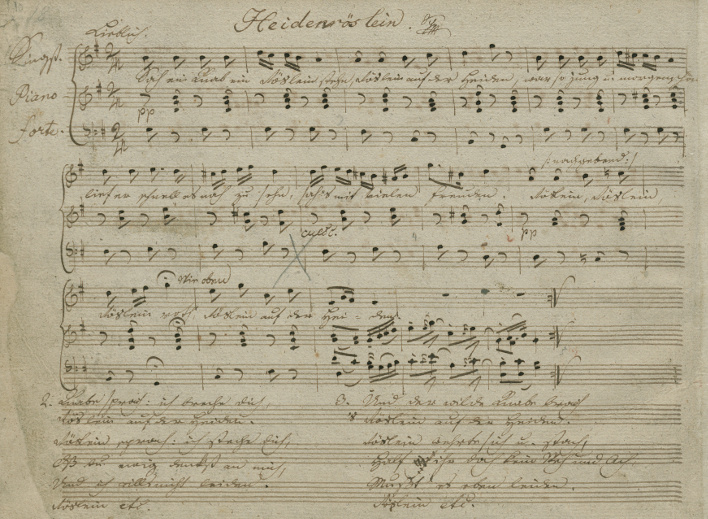 Heidenröslein.
Lieblich.
Singst.
Sah ein Knab ein Röslein stehn, Röslein auf der Heiden, war so jung u. morgenschön
Piano
pp
forte.
nachgebend
lief er schnell es nah zu sehn, sah's mit vielen Freuden. Röslein, Röslein,
cresc.
pp
wie oben
Röslein roth, Röslein auf der Hei - den.
2. Knabe sprach: ich breche dich,
Röslein auf der Heiden.
Röslein sprach: ich steche dich,
daß du ewig denkst an mich,
Und ich will's nicht leiden.
Röslein etc.
3. Und der wilde Knabe brach
's Röslein auf der Heiden.
Röslein wehrte sich u. stach,
Half ihr doch kein Weh und Ach,
Mußt es eben leiden.
Röslein etc.